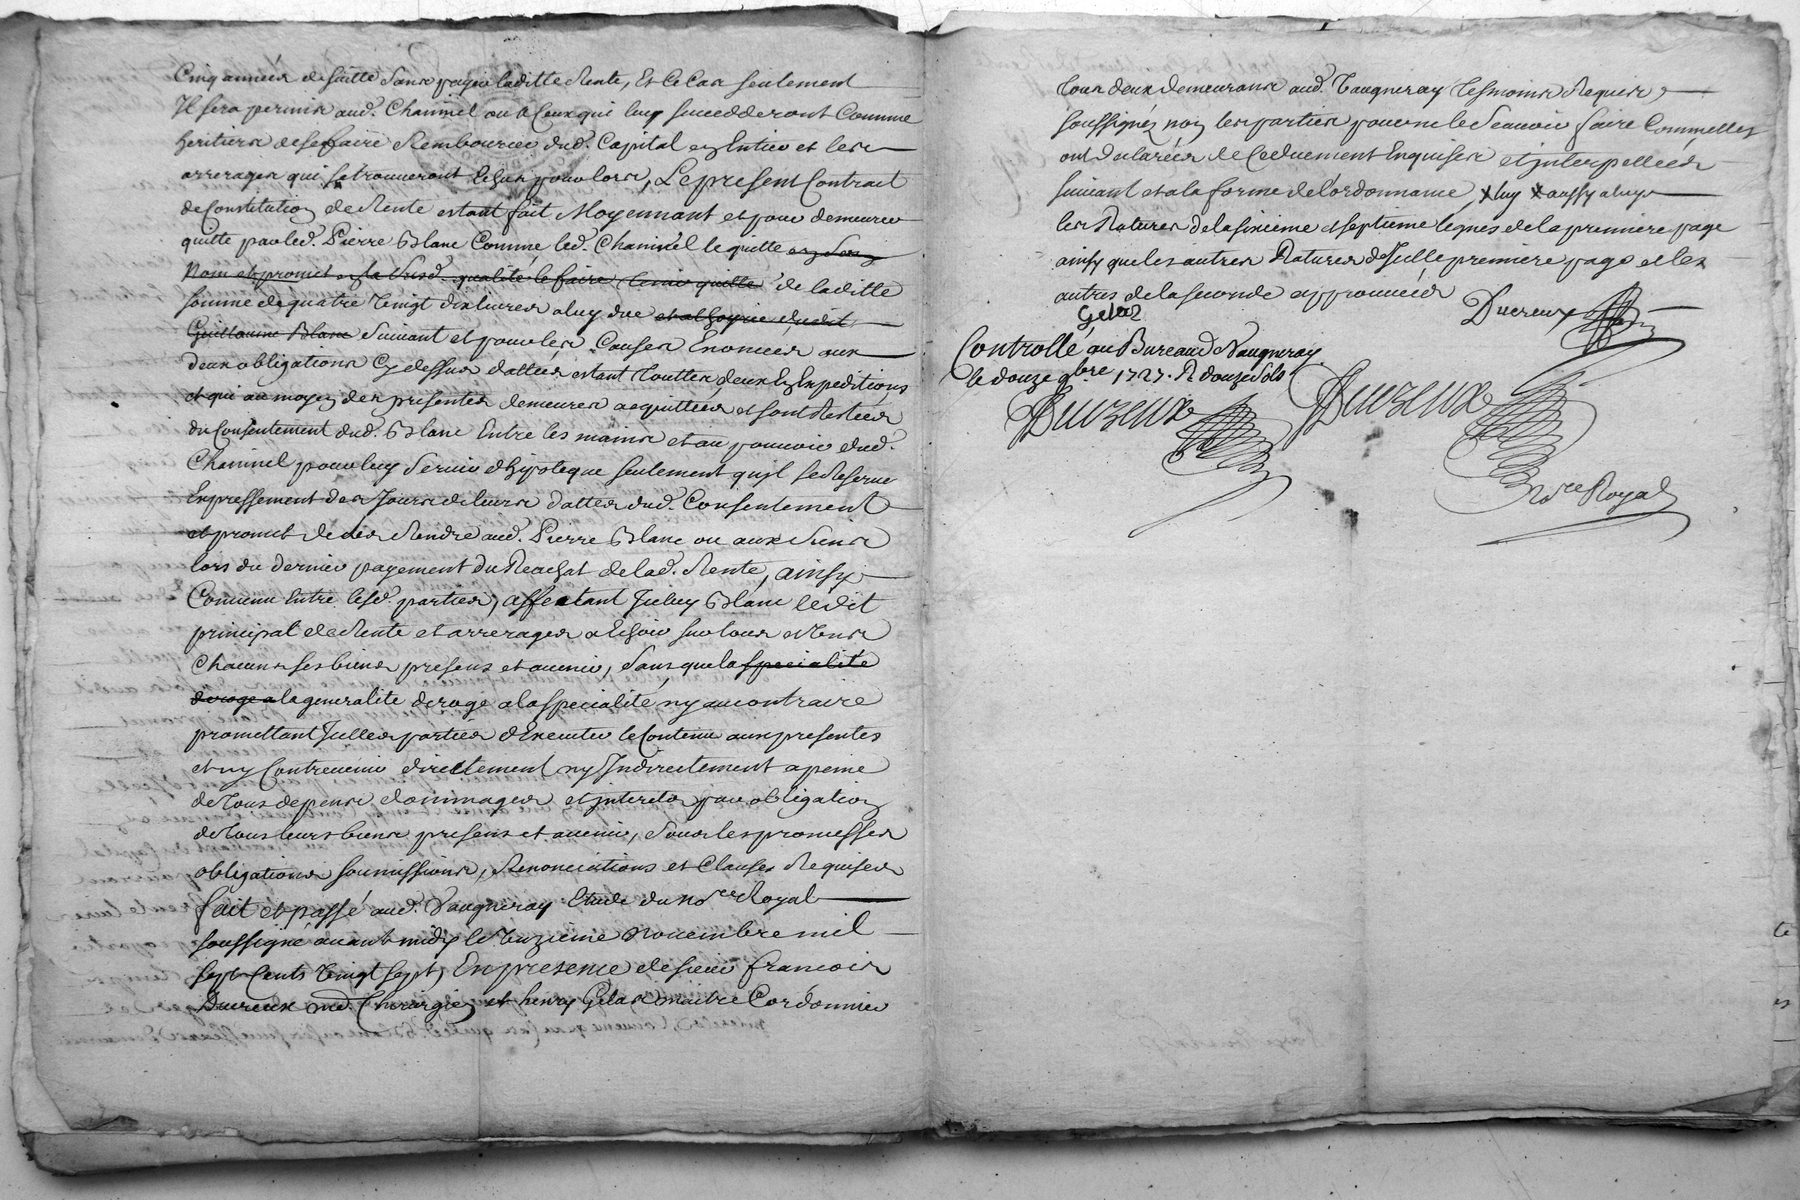 Cinq années de suitte sans payer laditte Rente, Et ce cas seulement
Il sera permis aud. Chaninel ou a Ceux qui luy succedderont Comme
heritiers de se faire Rembourcer dud. Capital en Entier et les
arrerages qui se trouueront Echus pour lors, Le present Contrat
de Constitution de Rente estant fait Moyennant et pour demeurer
quitte par led. Pierre Blanc Comme led. Chaninel le quitte en son
Nom et promet en sa susd. qualité le faire tenir quitte de laditte
somme de quatre Vingt dix liures a luy due et a l'hoirie dudit
Guillaume Blanc Suiuant et pour les Causes Enoncées aux
deux obligations Cy dessus dattées estant Touttes deux En Expeditions
et qui au moyen des presentes demeurent acquittées et sont Restées
du Consentement dud. Blanc Entre les mains et au pouuoir dud.
Chaninel pour luy Seruir d'hipoteque seulement qu'il se Reserue
Expressement des Jours de leurs dattes dud. Consentement
et promet de les Rendre aud. Pierre Blanc ou aux Siens
lors du dernier payement du Reachat de lad. Rente, ainsy
Conuenu Entre lesd. parties, affectant Iceluy Blanc ledit
principal de Rente et arrerages a Echoir sur tous et Uns
Chacuns ses biens presens et auenir, Sans que la specialité
deroge a la generalité deroge a la specialité ny au contraire
promettant Icelles parties d'Executer le Contenu aux presentes
et n'y Contreuenir directement ny Indirectement a peine
de tous depens dommages et interets par obligation
de tous leurs biens presens et auenir, Sous les promesses
obligations soumissions, Renonciations et Clauses Requises
fait et passé aud. Vaugneray Etude du no.re Royal
soussigné auant midy le Unzieme Nouembre mil
sept Cents Vingt sept, En presence de sieur francois
Ducreux md. Chirurgien et henry Gelas maitre Cordonnier
tous deux demeurans aud. Vaugneray Tesmoins Requis
soussignez non les parties pour ne le Scauoir faire Comme elles
ont declarées de Ce duement Enquises et interpellées
suiuant et a la forme de l'ordonnance, luy aussy a luy
les Ratures de la sixieme et septieme lignes de la premiere page
ainsy que les autres Ratures d'Icelle premiere page et les
autres de la seconde approuuées
Gelas Ducreux
Controllé au Bureau de Vaugneray
le douze 9bre 1727. R douze Sols
Duvzeux Duvzeux
No.re Royal